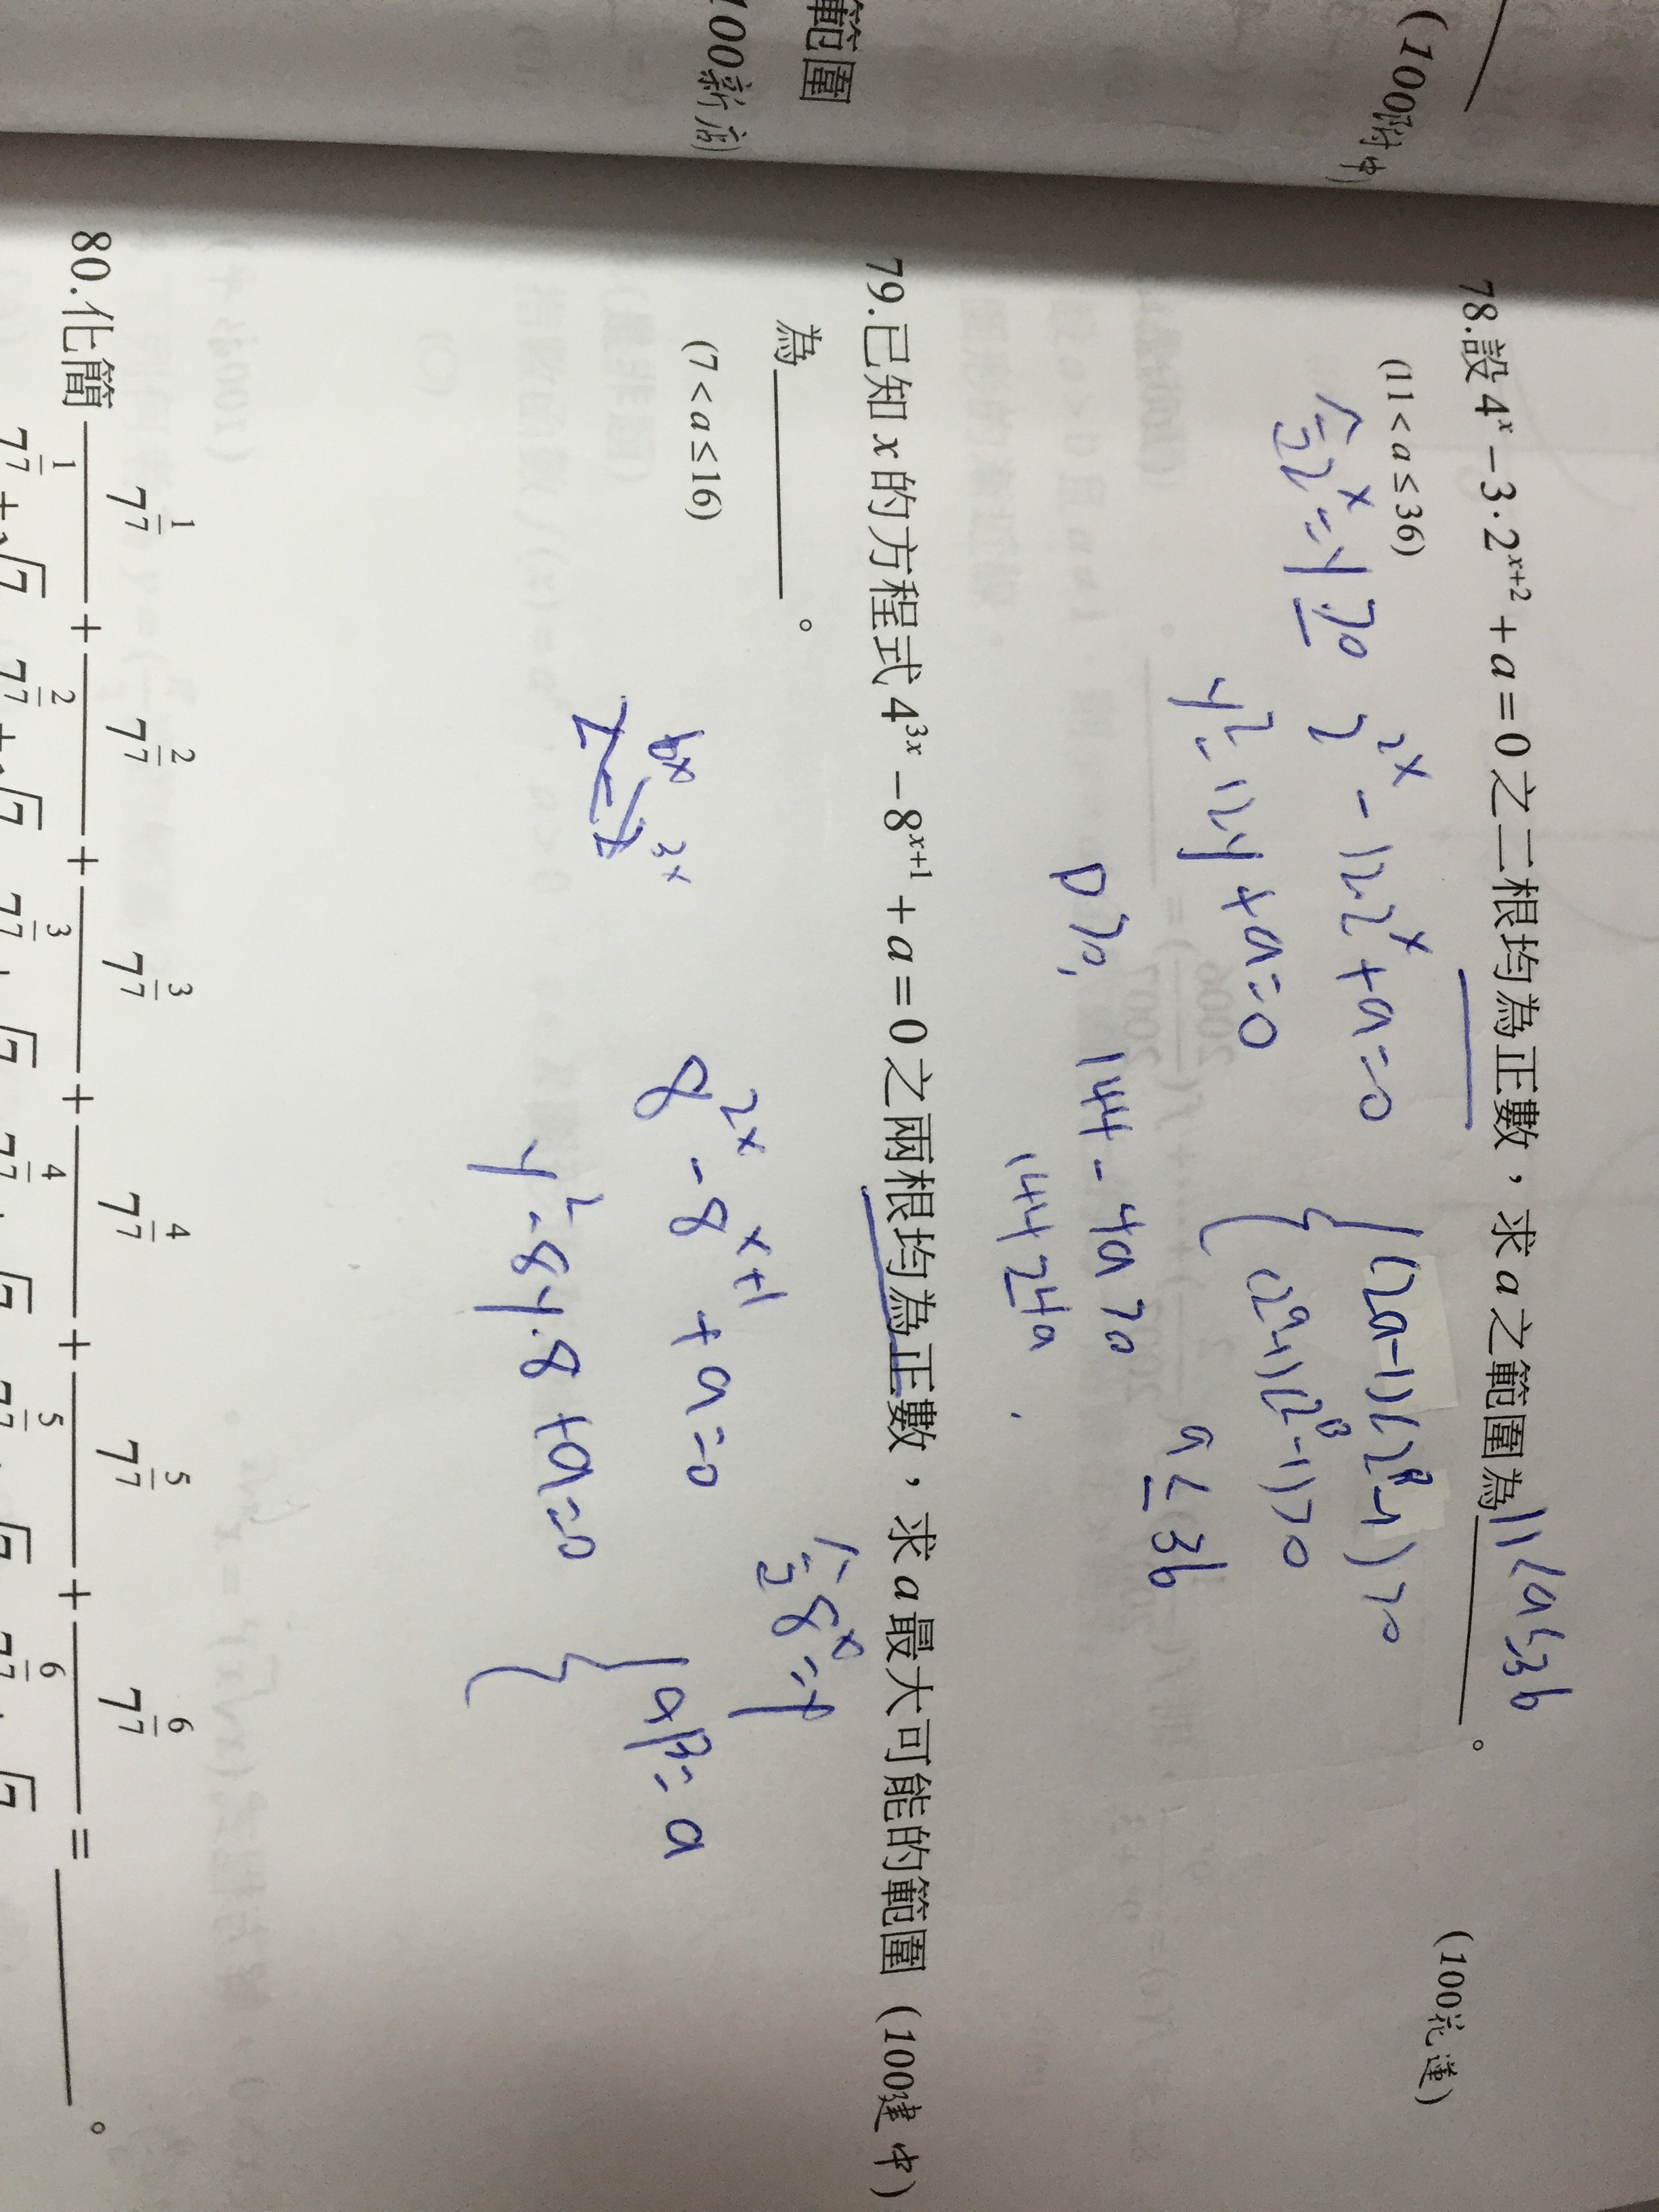 (100附中)
範圍
100新店)
78.設4^x − 3·2^{x+2} + a = 0 之二根均為正數，求 a 之範圍為 11<a≤36 。
(100花蓮)
(11 < a ≤ 36)
令2^x = y >0
2^{2x} - 12·2^x + a = 0
y^2 - 12y + a = 0
(2a-1)(2^β-1)>0
(2^a-1)(2^β-1)>0
D≥0,
144 - 4a ≥0
a ≤ 36
144 ≥ 4a
79.已知 x 的方程式 4^{3x} − 8^{x+1} + a = 0 之兩根均為正數，求 a 最大可能的範圍 (100建中)
為 。
(7 < a ≤ 16)
令8^x = y
6x 3x
8^{2x} - 8^{x+1} + a = 0
αβ = a
y^2 - 8y·8 + a = 0
80.化簡 \frac{7^{\frac{1}{7}}}{7^{\frac{1}{7}}+\sqrt{7}} + \frac{7^{\frac{2}{7}}}{7^{\frac{2}{7}}+\sqrt{7}} + \frac{7^{\frac{3}{7}}}{7^{\frac{3}{7}}+\sqrt{7}} + \frac{7^{\frac{4}{7}}}{7^{\frac{4}{7}}+\sqrt{7}} + \frac{7^{\frac{5}{7}}}{7^{\frac{5}{7}}+\sqrt{7}} + \frac{7^{\frac{6}{7}}}{7^{\frac{6}{7}}+\sqrt{7}} = 。